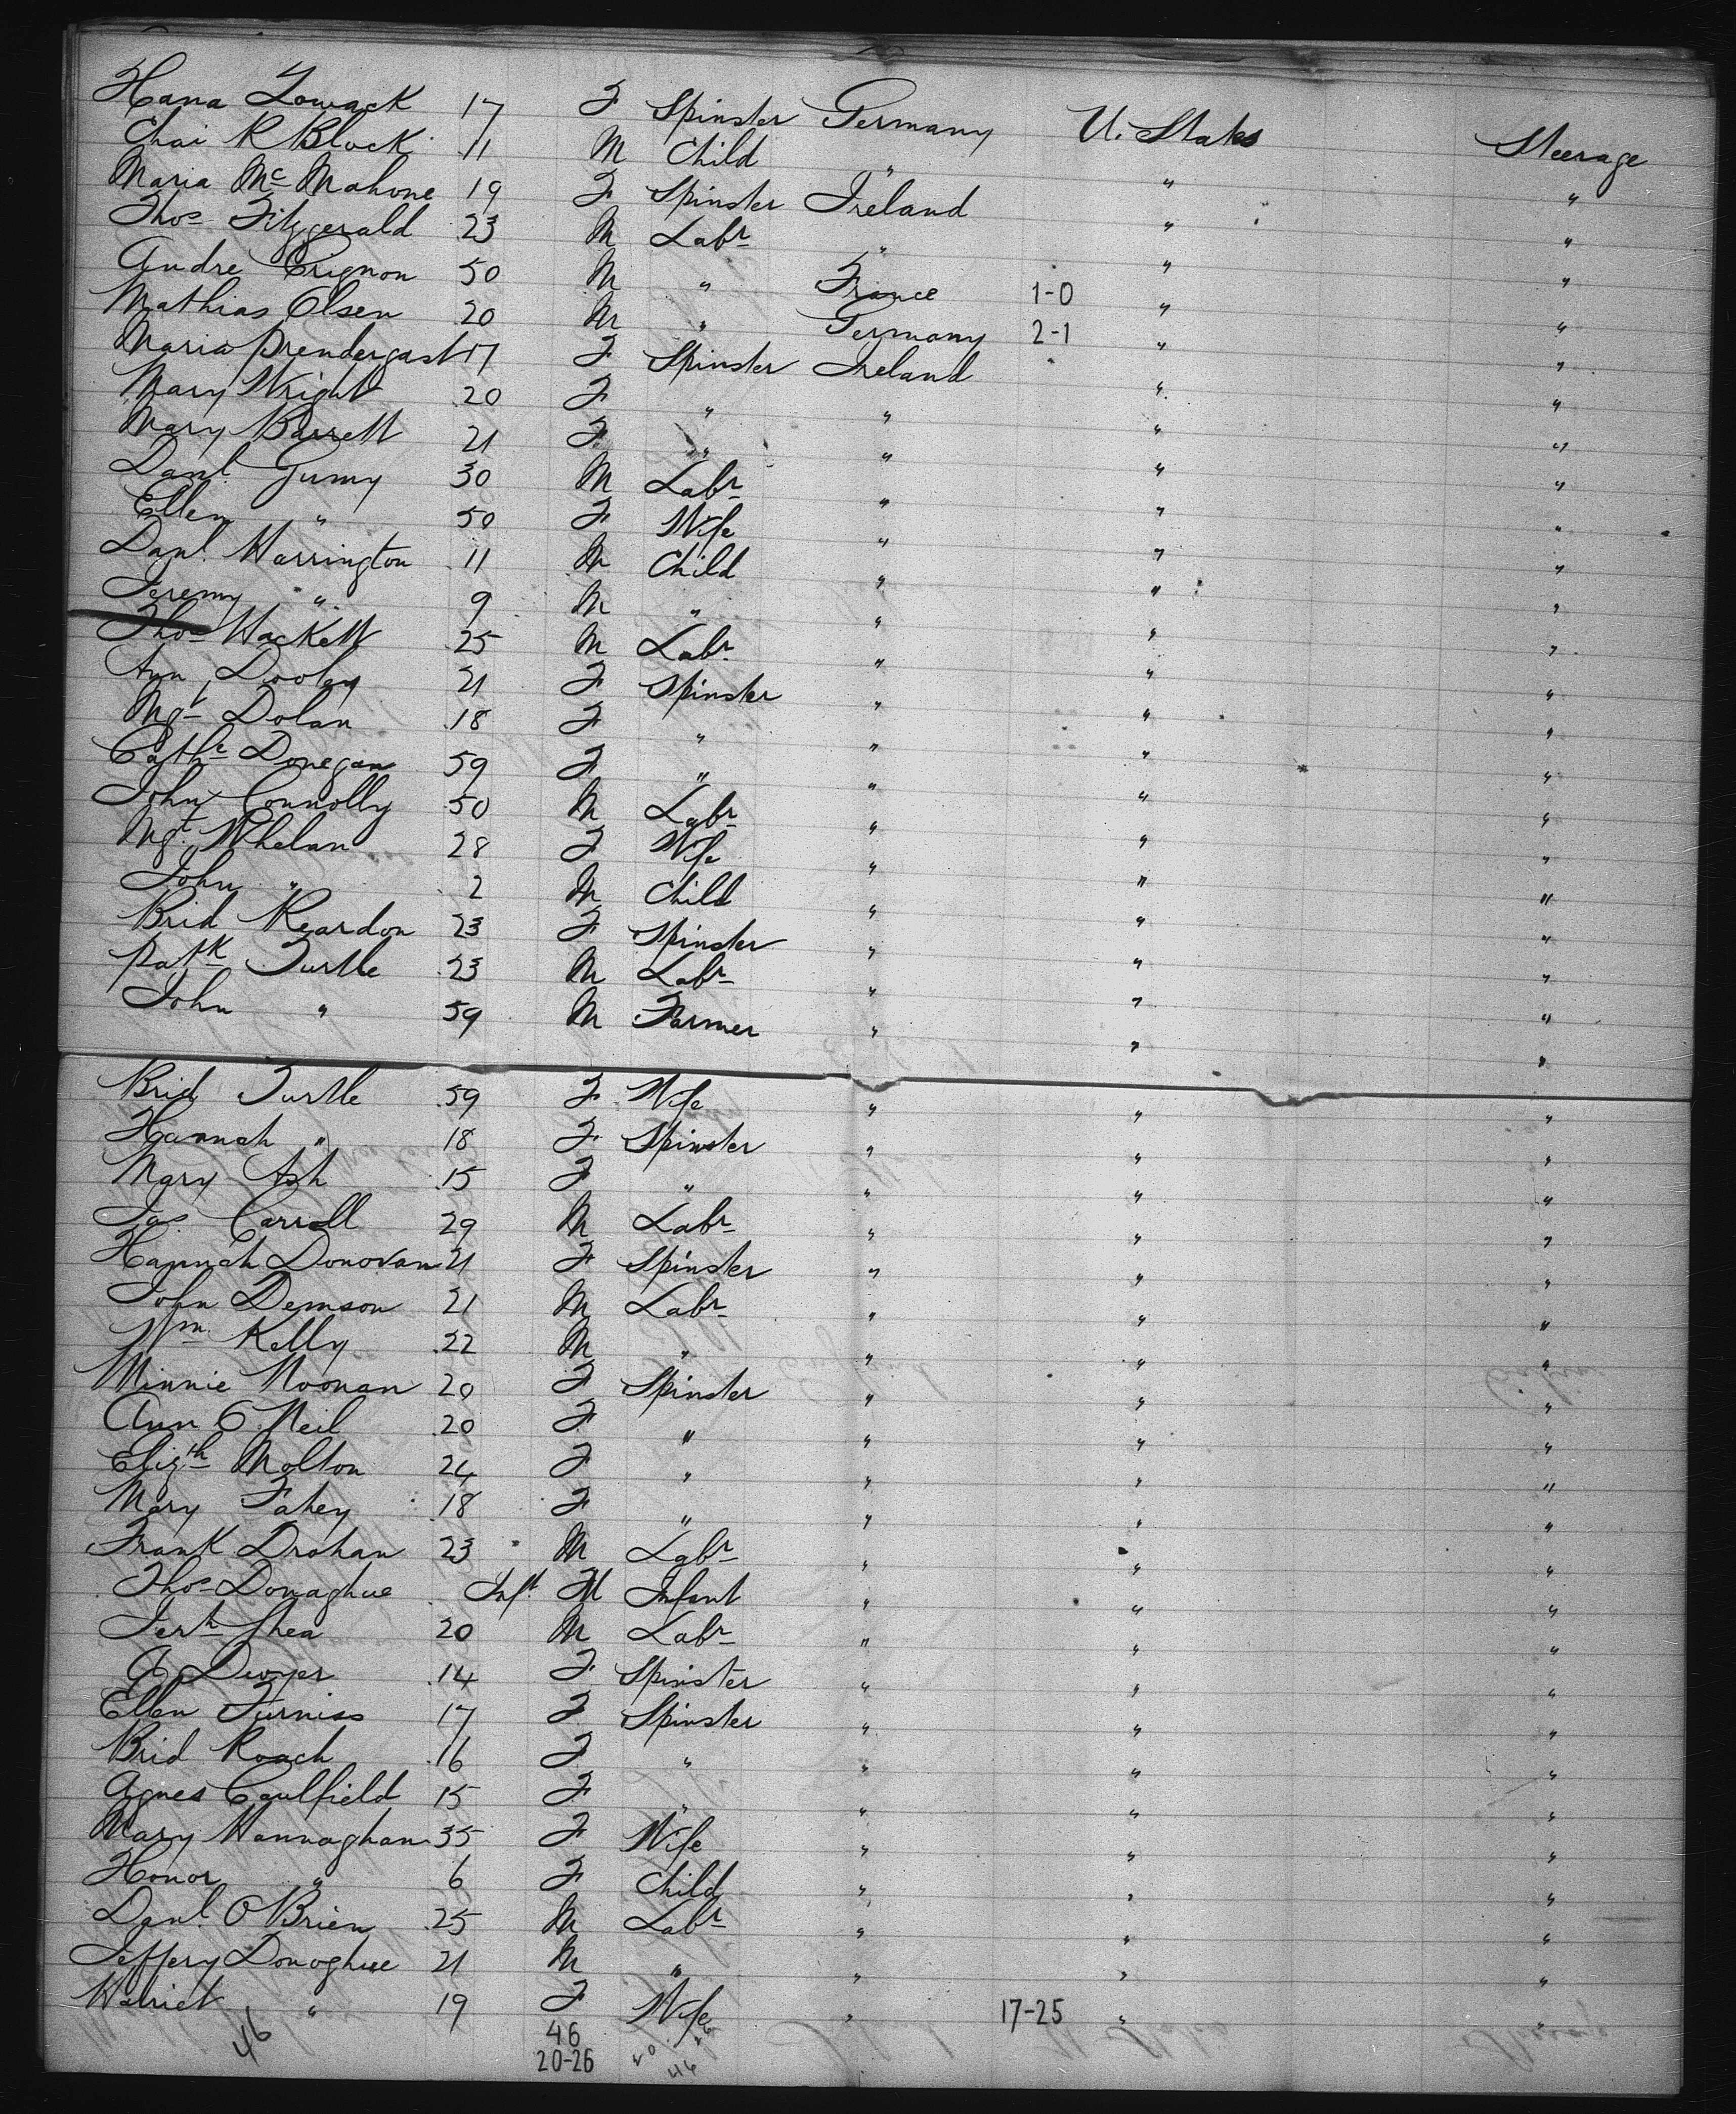 Hana Lowack 17 F Spinster Germany U. States Steerage
Chai R Block 11 M Child " " "
Maria Mc Mahone 19 F Spinster Ireland " "
Thos Fitzgerald 23 M Labr " " "
Andre Crignon 50 M " France 1-0 " "
Mathias Olsen 20 M " Germany 2-1 " "
Maria Prendergast 17 F Spinster Ireland " "
Mary Wright 20 F " " " "
Mary Barrett 21 F " " " "
Danl 30 M Labr " " "
Ellen " 50 F Wife " " "
Danl Harrington 11 M Child " " "
Jeremy " 9 M " " " "
Thos Hackett 25 M Labr " " "
Ann Dooley 21 F Spinster " " "
Mgt Dolan 18 F " " " "
Cathe Donegan 59 F " " " "
John Connolly 50 M Labr " " "
Mgt Whelan 28 F Wife " " "
John " 2 M Child " " "
Brid Reardon 23 F Spinster " " "
Patk Turtle 23 M Labr " " "
John " 59 M Farmer " " "
Brid Turtle 59 F Wife " " "
Hannah " 18 F Spinster " " "
Mary Ash 15 F " " " "
Jas Carroll 29 M Labr " " "
Hannah Donovan 21 F Spinster " " "
John Demson 21 M Labr " " "
Wm Kelly 22 M " " " "
Minnie Noonan 20 F Spinster " " "
Ann O Neil 20 F " " " "
Elizth Molton 24 F " " " "
Mary Fahey 18 F " " " "
Frank Drohan 23 M Labr " " "
Thos Donaghue Inft M Infant " " "
Jerh Shea 20 M Labr " " "
A Dwyer 14 F Spinster " " "
Ellen Furniss 17 F Spinster " " "
Brid Roach 16 F " " " "
Agnes Caulfield 15 F " " " "
Mary Hannaghan 35 F Wife " " "
Honor " 6 F Child " " "
Danl O'Brien 25 M Labr " " "
Jeffery Donoghue 21 M " " " "
Harriet " 19 F Wife " 17-25 " "
46 46
20-26 20 26
46